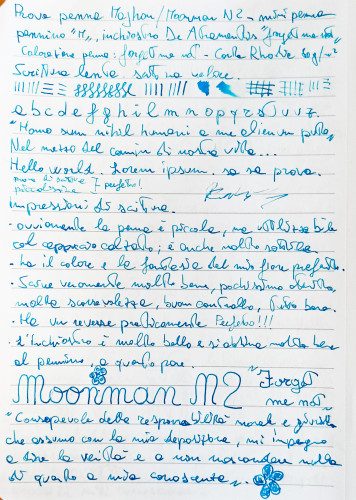 Prova penna Majhon/Moonman N2 - mini penna
pennino "M", inchiostro De Atramentis "forget me not"
Colorazione penna: forget me not - Carta Rhodia 80 g/m²
Scrittura lenta. scrittura veloce.
a b c d e f g h i l m n o p q r s t u v z.
"Homo sum nihil humani a me alienum puto"
Nel mezzo del cammin di nostra vita...
Hello world. Lorem ipsum. sa sa prova.
prova di scrittura piccolissima È perfetto!
Impressioni di scrittura.
- ovviamente la penna è piccola, ma utilizzabile
col cappuccio calzato; è anche molto sottile.
- ha il colore e la fantasia del mio fiore preferito.
- Scrive veramente molto bene, pochissimo attrito,
molta scorrevolezza, buon controllo, tutto bene.
- Ha un reverse praticamente Perfetto!!!
- L'inchiostro è molto bello e si abbina molto bene
al pennino, a quanto pare.
Moonman N2 "Forget
me not"
"Consapevole della responsabilità morale e giuridica
che assumo con la mia deposizione, mi impegno
a dire la verità e a non nascondere nulla
di quanto a mia conoscenza."